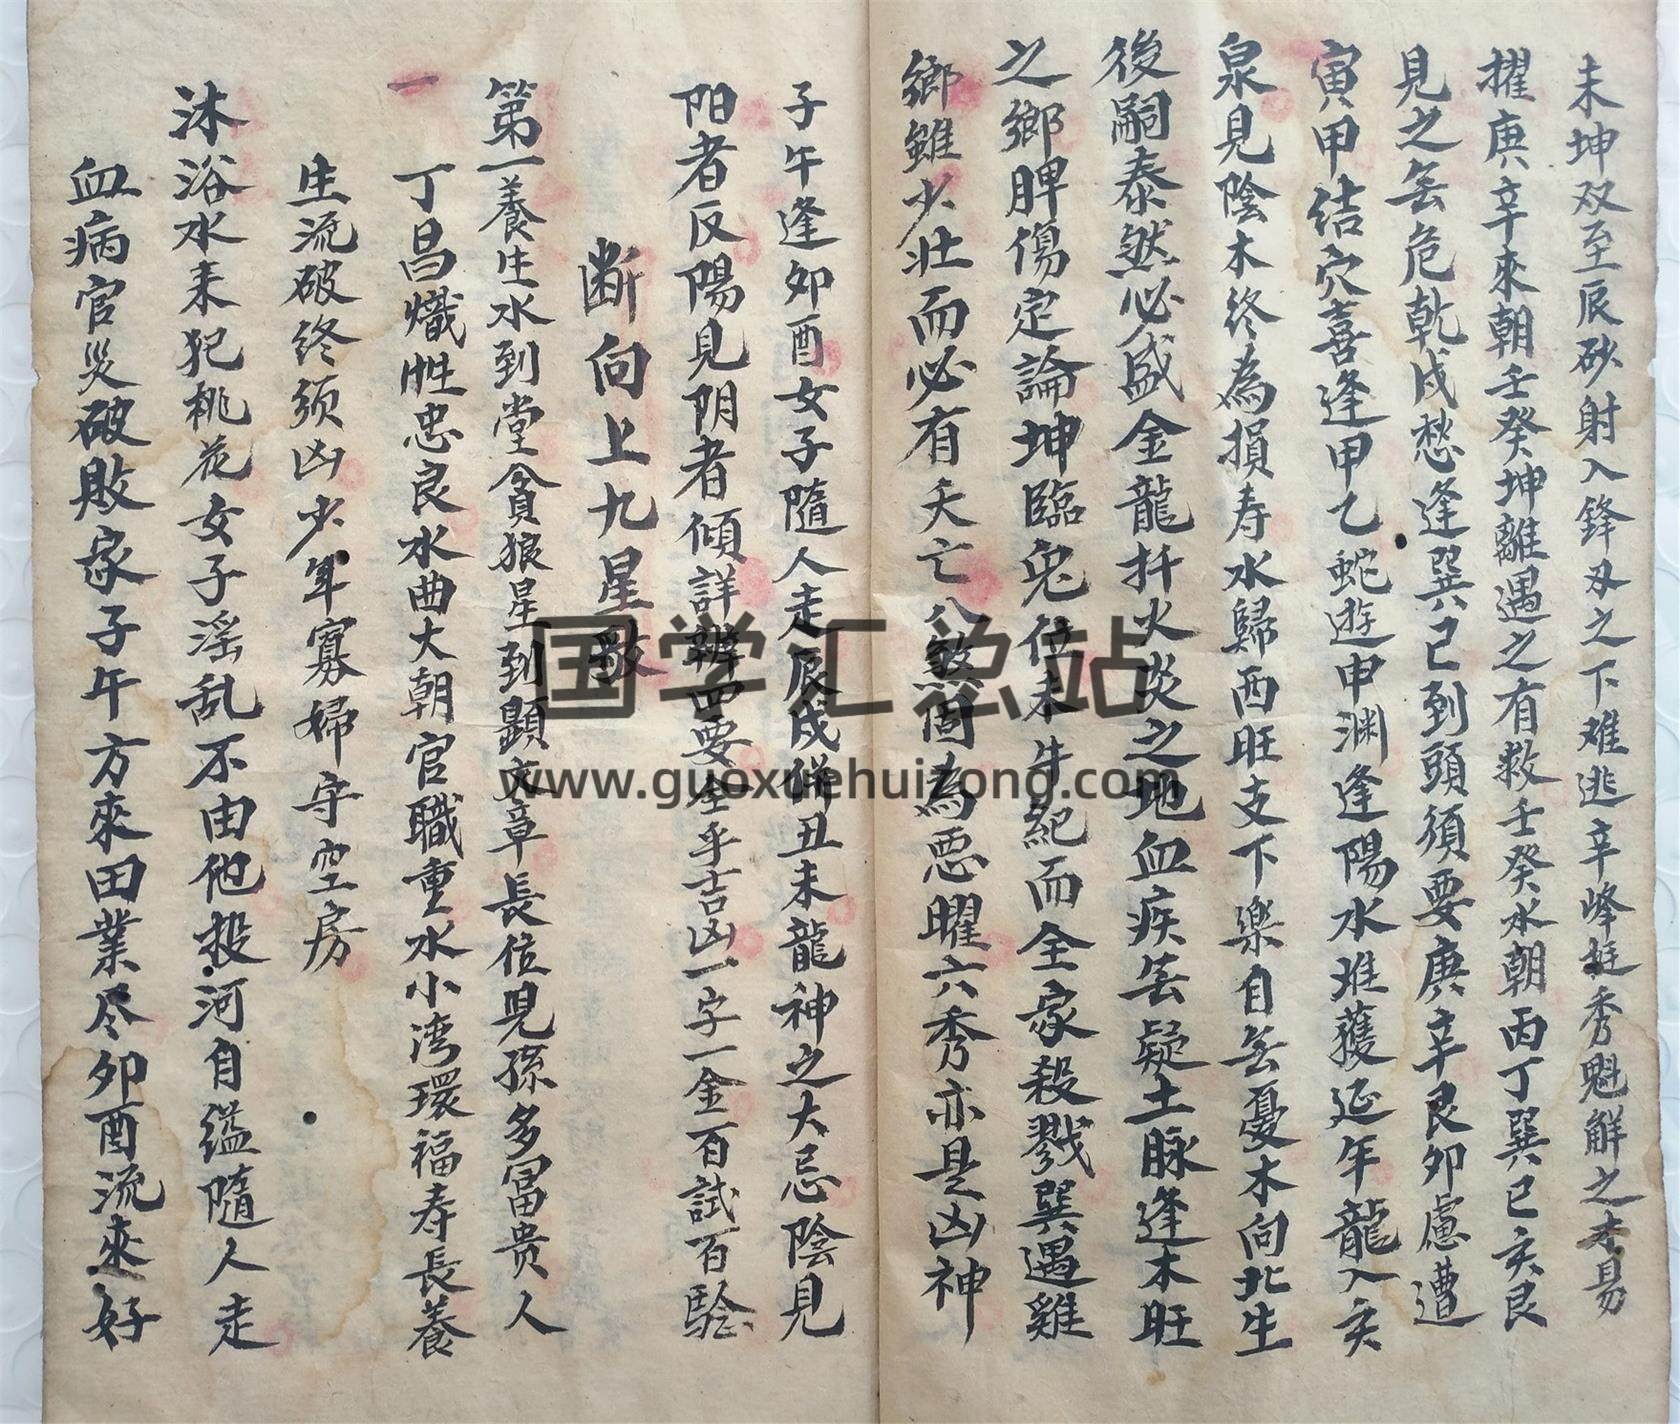 未坤双至辰砂射入鋒刃之下难逃辛峰挺秀魁解之未易
擢庚辛來朝壬癸坤離遇之有救壬癸水朝丙丁巽巳亥艮
見之無危乾戌愁逢巽巳到頭須要庚辛艮卯慮遭
寅甲结穴喜逢甲乙蛇遊申渊逢陽水堆獲延年龍入亥
泉見陰木终為損寿水歸西旺支下樂自無憂木向北生
後嗣泰然必盛金龍扦火炎之地血疾無疑土脉逢木旺
之鄉脾傷定論坤臨兔位未牛紀而全家殺戮巽遇雞
鄉雖少壮而必有夭亡八煞固為恶曜六秀亦是凶神
子午逢卯酉女子隨人走辰戌併丑未龍神之大忌陰見
阳者反陽見阴者傾詳辨四要全乎吉凶一字一金百試百驗
断向上九星歌
第一養生水到堂貪狼星到顕文章長位児孫多富贵人
丁昌熾性忠良水曲大朝官職重水小湾環福寿長養
生流破终须凶少年寡婦守空房
沐浴水来犯桃花女子淫乱不由他投河自缢隨人走
血病官災破敗家子午方來田業尽卯酉流來好
国学汇总站
www.guoxuehuizong.com